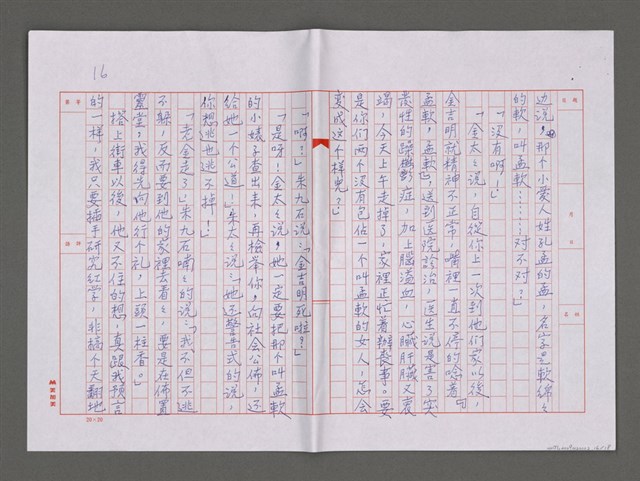 16
边说，那个小爱人姓孔孟的孟，名字是軟綿之
的軟，叫孟軟……对不对？」
「没有啊！」
「金太之说，自從你上一次到他們家以後，
金吉明就精神不正常，嘴裡一直不停的唸着『
孟軟，孟軟』，送到医院診治，医生说是害了突
發性的躁鬱症，加上腦溢血，心臟肝臟又衰
竭，今天上午走掉了，家裡正忙着辦喪事。要
是你们两个没有包佔一个叫孟軟的女人，怎会
变成这个样兒？」
「啊？」朱九石说：「金吉明死啦？」
「是呀！金太之说，她一定要把那个叫孟軟
的小婊子查出来，再檢举你，向社会公佈，还
给她一个公道！」朱太之说：她还警告式的说，
你想逃也逃不掉！」
「老金走了」朱九石喃之的说：「我不但不逃
不躲，反而要到他的家裡去看之，要是在佈置
靈堂，我得先向他行个礼，上頭一柱香。」
搭上街車以後，他又不住的想，真跟我預言
的一样，我只要插手研究红学，非搞个天翻地
20×20